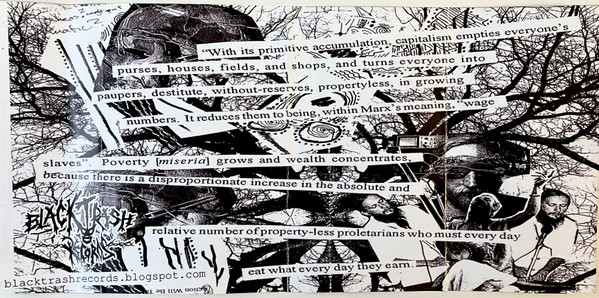 "With its primitive accumulation, capitalism empties everyone's
purses, houses, fields, and shops, and turns everyone into
paupers, destitute, without-reserves, propertyless, in growing
numbers. It reduces them to being, within Marx's meaning, "wage
slaves". Poverty [miseria] grows and wealth concentrates,
because there is a disproportionate increase in the absolute and
relative number of property-less proletarians who must every day
eat what every day they earn.
BLACK TRASH
RECORDS
blacktrashrecords.blogspot.com